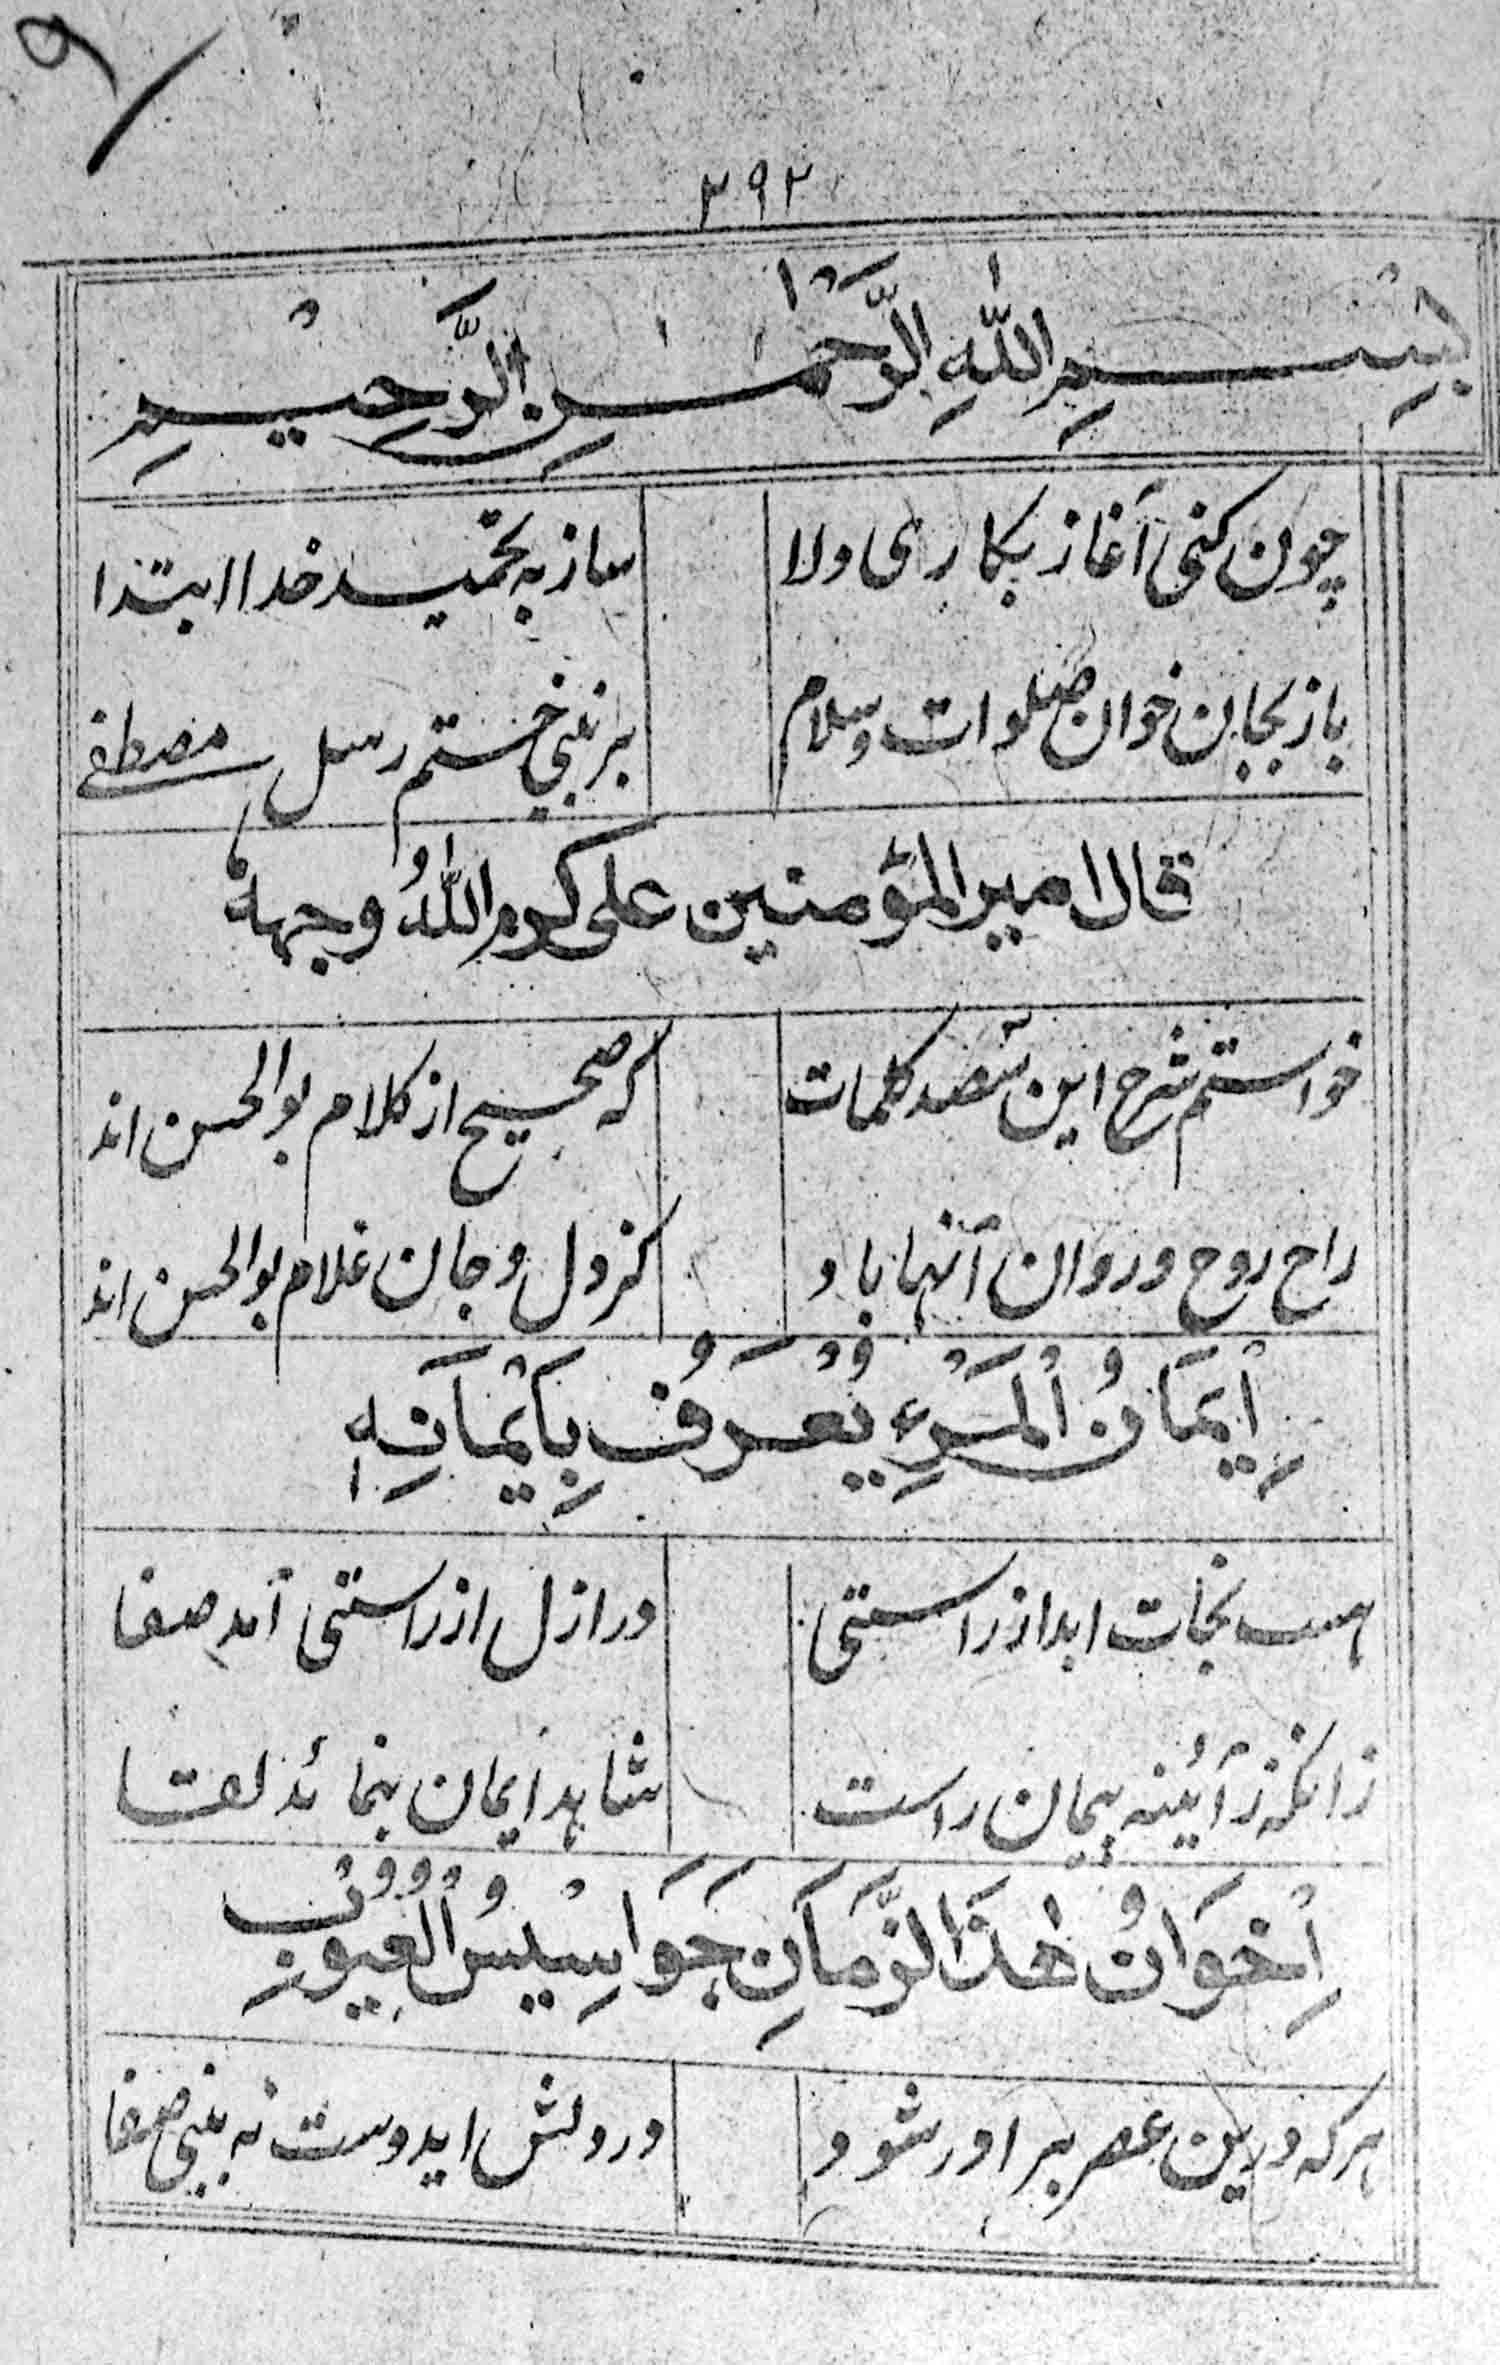 ۳۹۲
بِسْمِ اللّٰهِ الرَّحْمٰنِ الرَّحِيْمِ
چون کنی آغاز بکاری ولا ساز به تحمید خدا ابتدا
باز بجان خوان صلوات و سلام بر نبی ختم رسل مصطفے
قال امیر المؤمنین علی کرم اللّٰهُ وجهہٗ
خواستم شرح این شصد کلمات که صحیح از کلام بوالحسن اند
راح روح و روان آنها باد کز دل و جان غلام بوالحسن اند
اِيْمَانُ الْمَرْءِ يُعْرَفُ بِاَيْمَانِهٖ
هست نجات ابد از راستی در ازل از راستی آمد صفا
زانکه ز آئینه پیمان راست شاهد ایمان بنماید لقا
اِخْوَانُ هٰذَا الزَّمَانِ جَوَاسِيْسُ الْعُيُوْبِ
هر که درین عصر برادر شود در دلش ایدوست نه بینی صفا